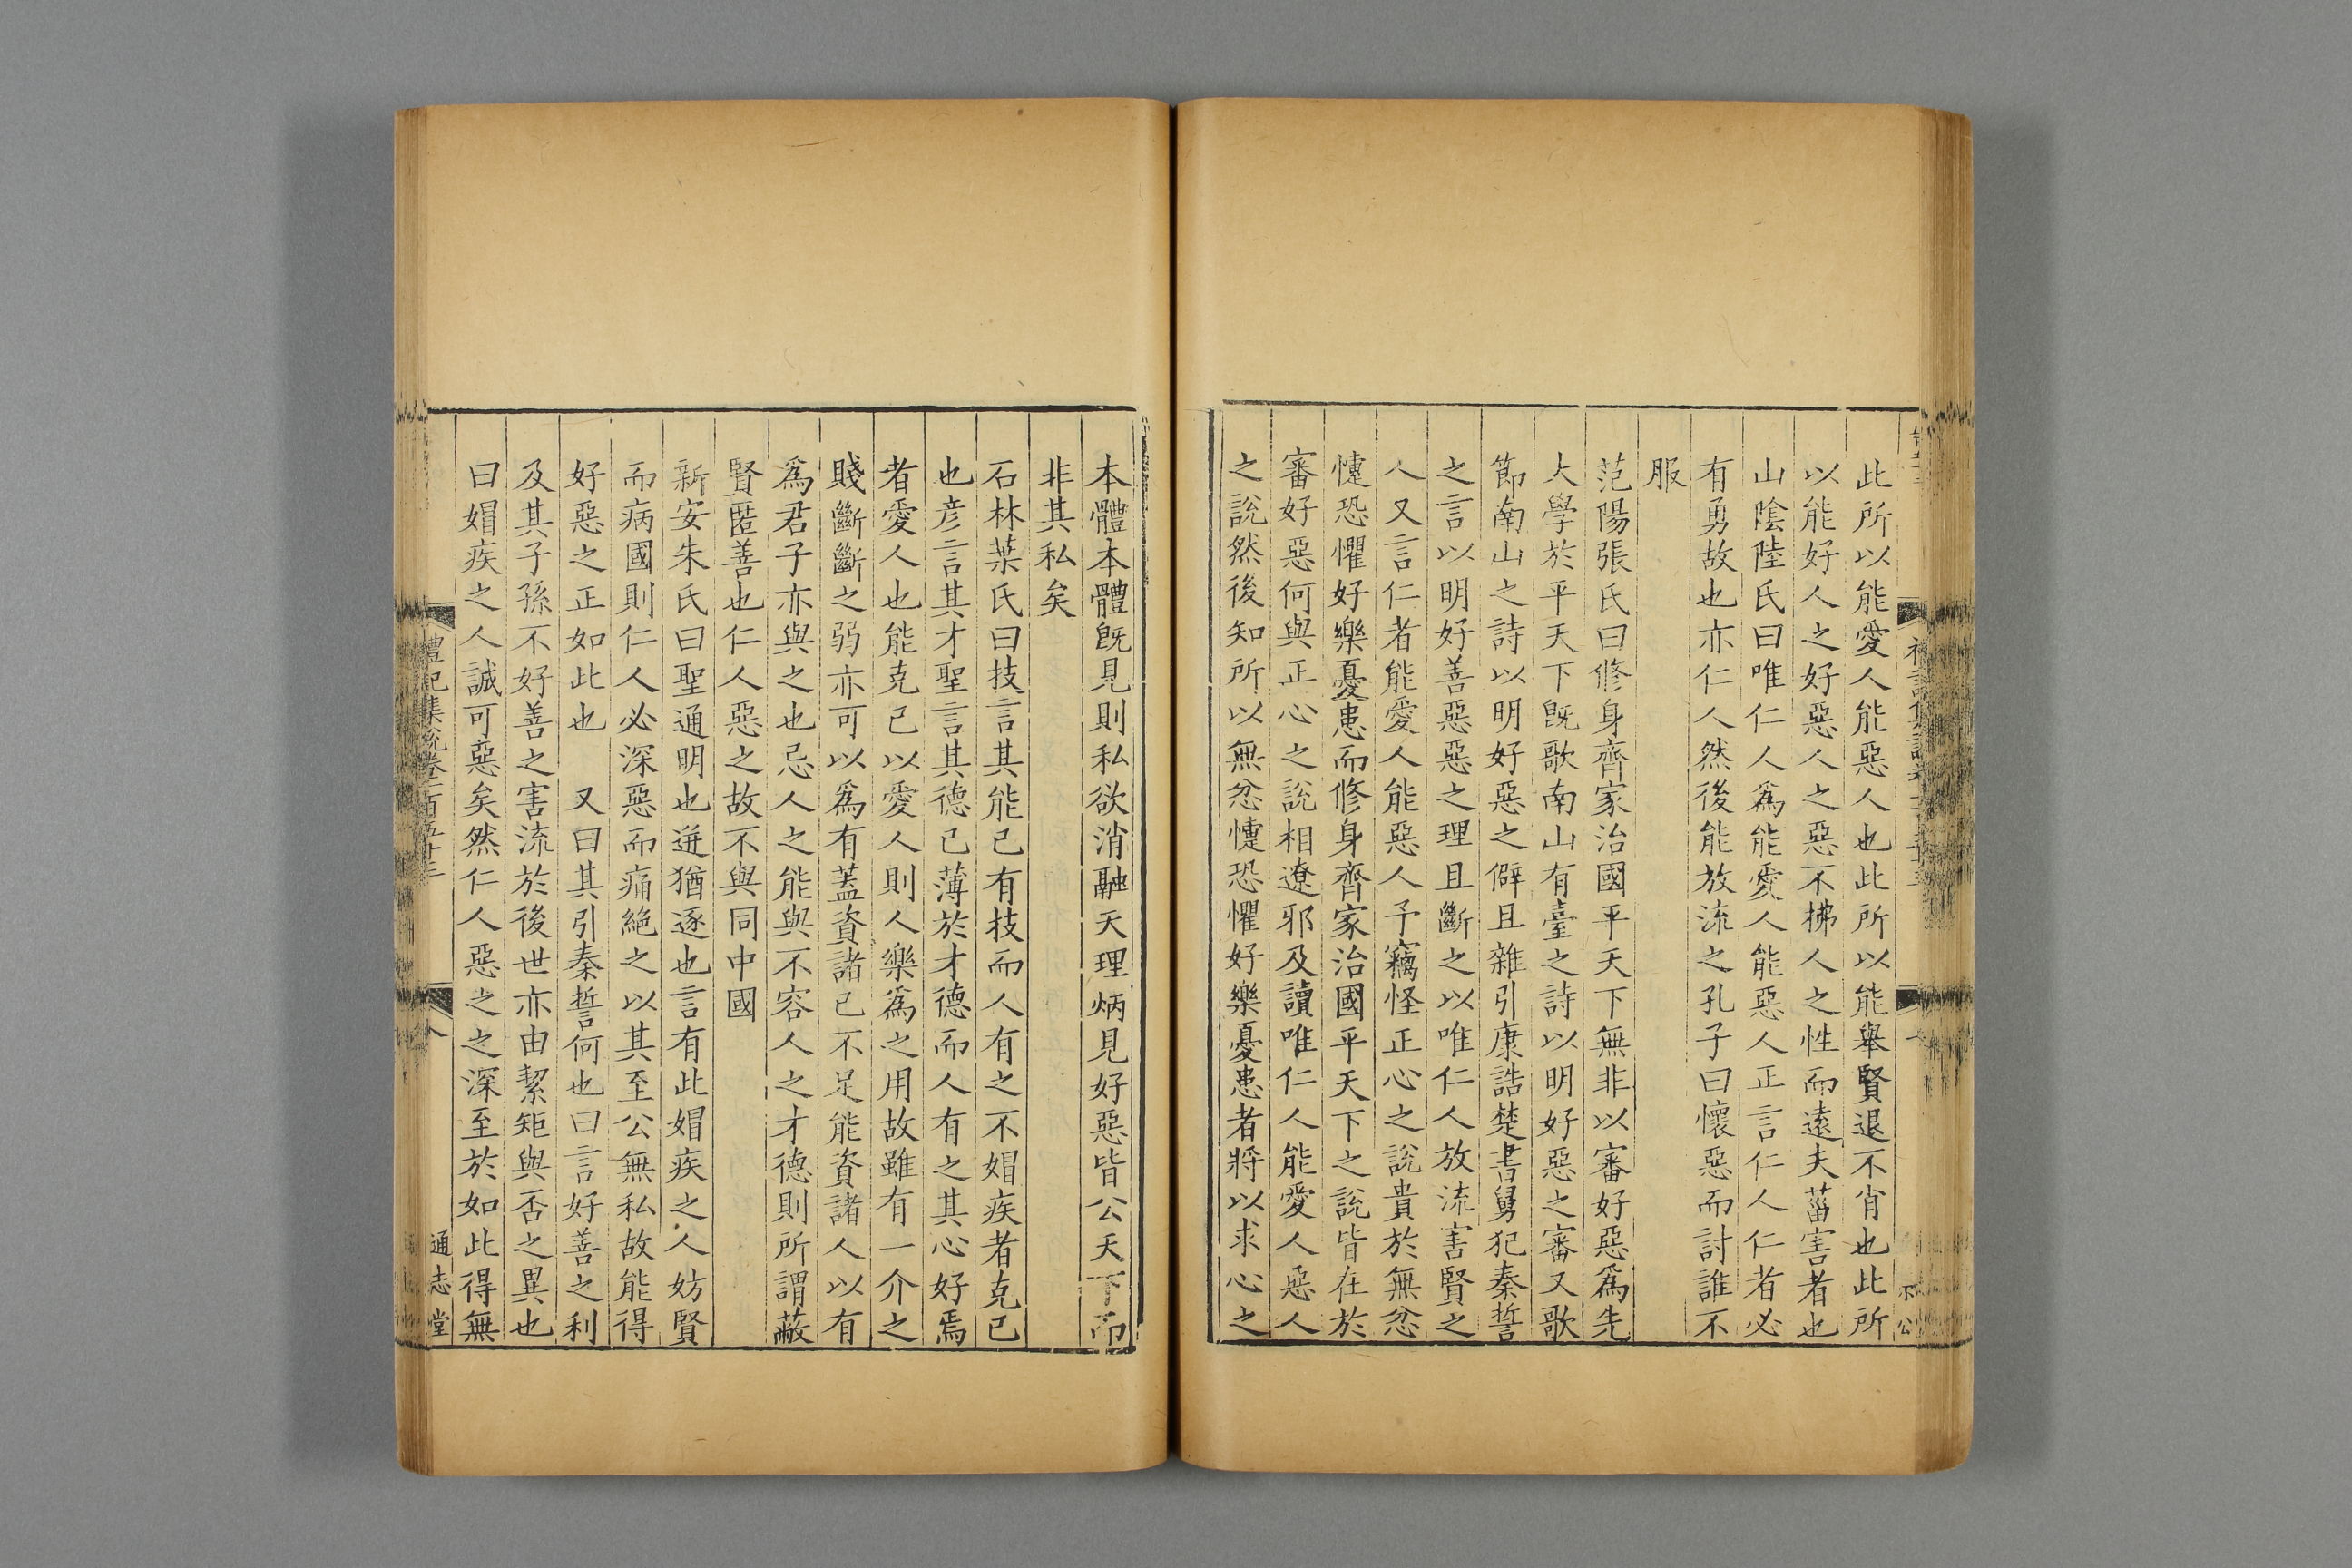 此所以能愛人能惡人也此所以能舉賢退不肖也此所
以能好人之好惡人之惡不拂人之性而遠夫菑害者也
山陰陸氏曰唯仁人爲能愛人能惡人正言仁人仁者必
有勇故也亦仁人然後能放流之孔子曰懷惡而討誰不
服
范陽張氏曰修身齊家治國平天下無非以審好惡爲先
大學於平天下旣歌南山有臺之詩以明好惡之審又歌
節南山之詩以明好惡之僻且雜引康誥楚書舅犯秦誓
之言以明好善惡惡之理且斷之以唯仁人放流害賢之
人又言仁者能愛人能惡人予竊怪正心之說貴於無忿
懥恐懼好樂憂患而修身齊家治國平天下之說皆在於
審好惡何與正心之說相遼邪及讀唯仁人能愛人惡人
之說然後知所以無忿懥恐懼好樂憂患者將以求心之
本體本體旣見則私欲消融天理炳見好惡皆公天下而
非其私矣
石林葉氏曰技言其能已有技而人有之不媢疾者克已
也彦言其才聖言其德已薄於才德而人有之其心好焉
者愛人也能克已以愛人則人樂爲之用故雖有一介之
賤斷斷之弱亦可以爲有蓋資諸已不足能資諸人以有
爲君子亦與之也忌人之能與不容人之才德則所謂蔽
賢匿善也仁人惡之故不與同中國
新安朱氏曰聖通明也迸猶逐也言有此媢疾之人妨賢
而病國則仁人必深惡而痛絕之以其至公無私故能得
好惡之正如此也　又曰其引秦誓何也曰言好善之利
及其子孫不好善之害流於後世亦由絜矩與否之異也
曰媢疾之人誠可惡矣然仁人惡之之深至於如此得無
禮記集說卷一百五十三
八
通志堂